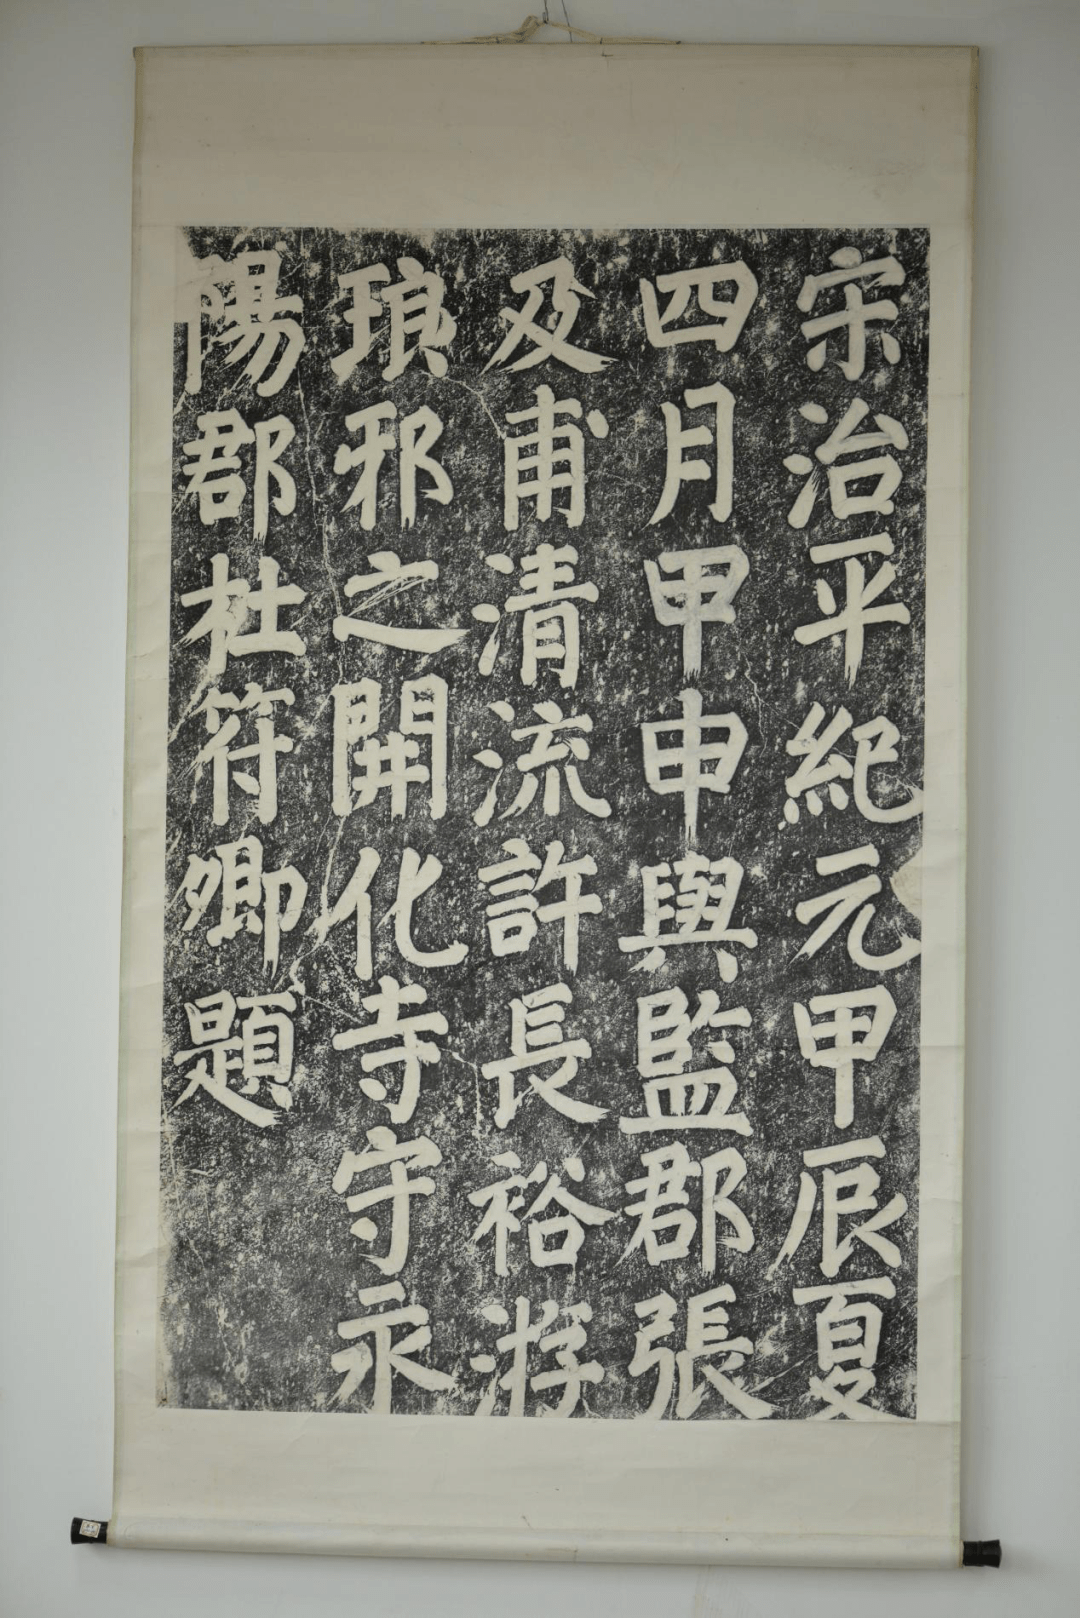 宋治平紀元甲辰夏
四月甲申與監郡張
及甫清流許長裕游
琅邪之開化寺守永
陽郡杜符卿題